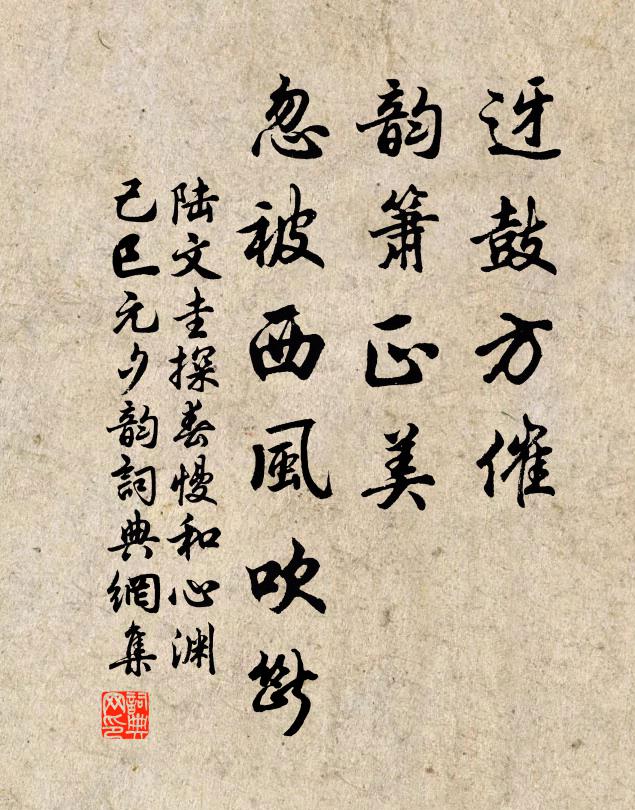 迓鼓方催
韵箫正美
忽被西風吹斷
陸文圭探春慢和心渊
己巳元夕韵詞典網集
詞典网印